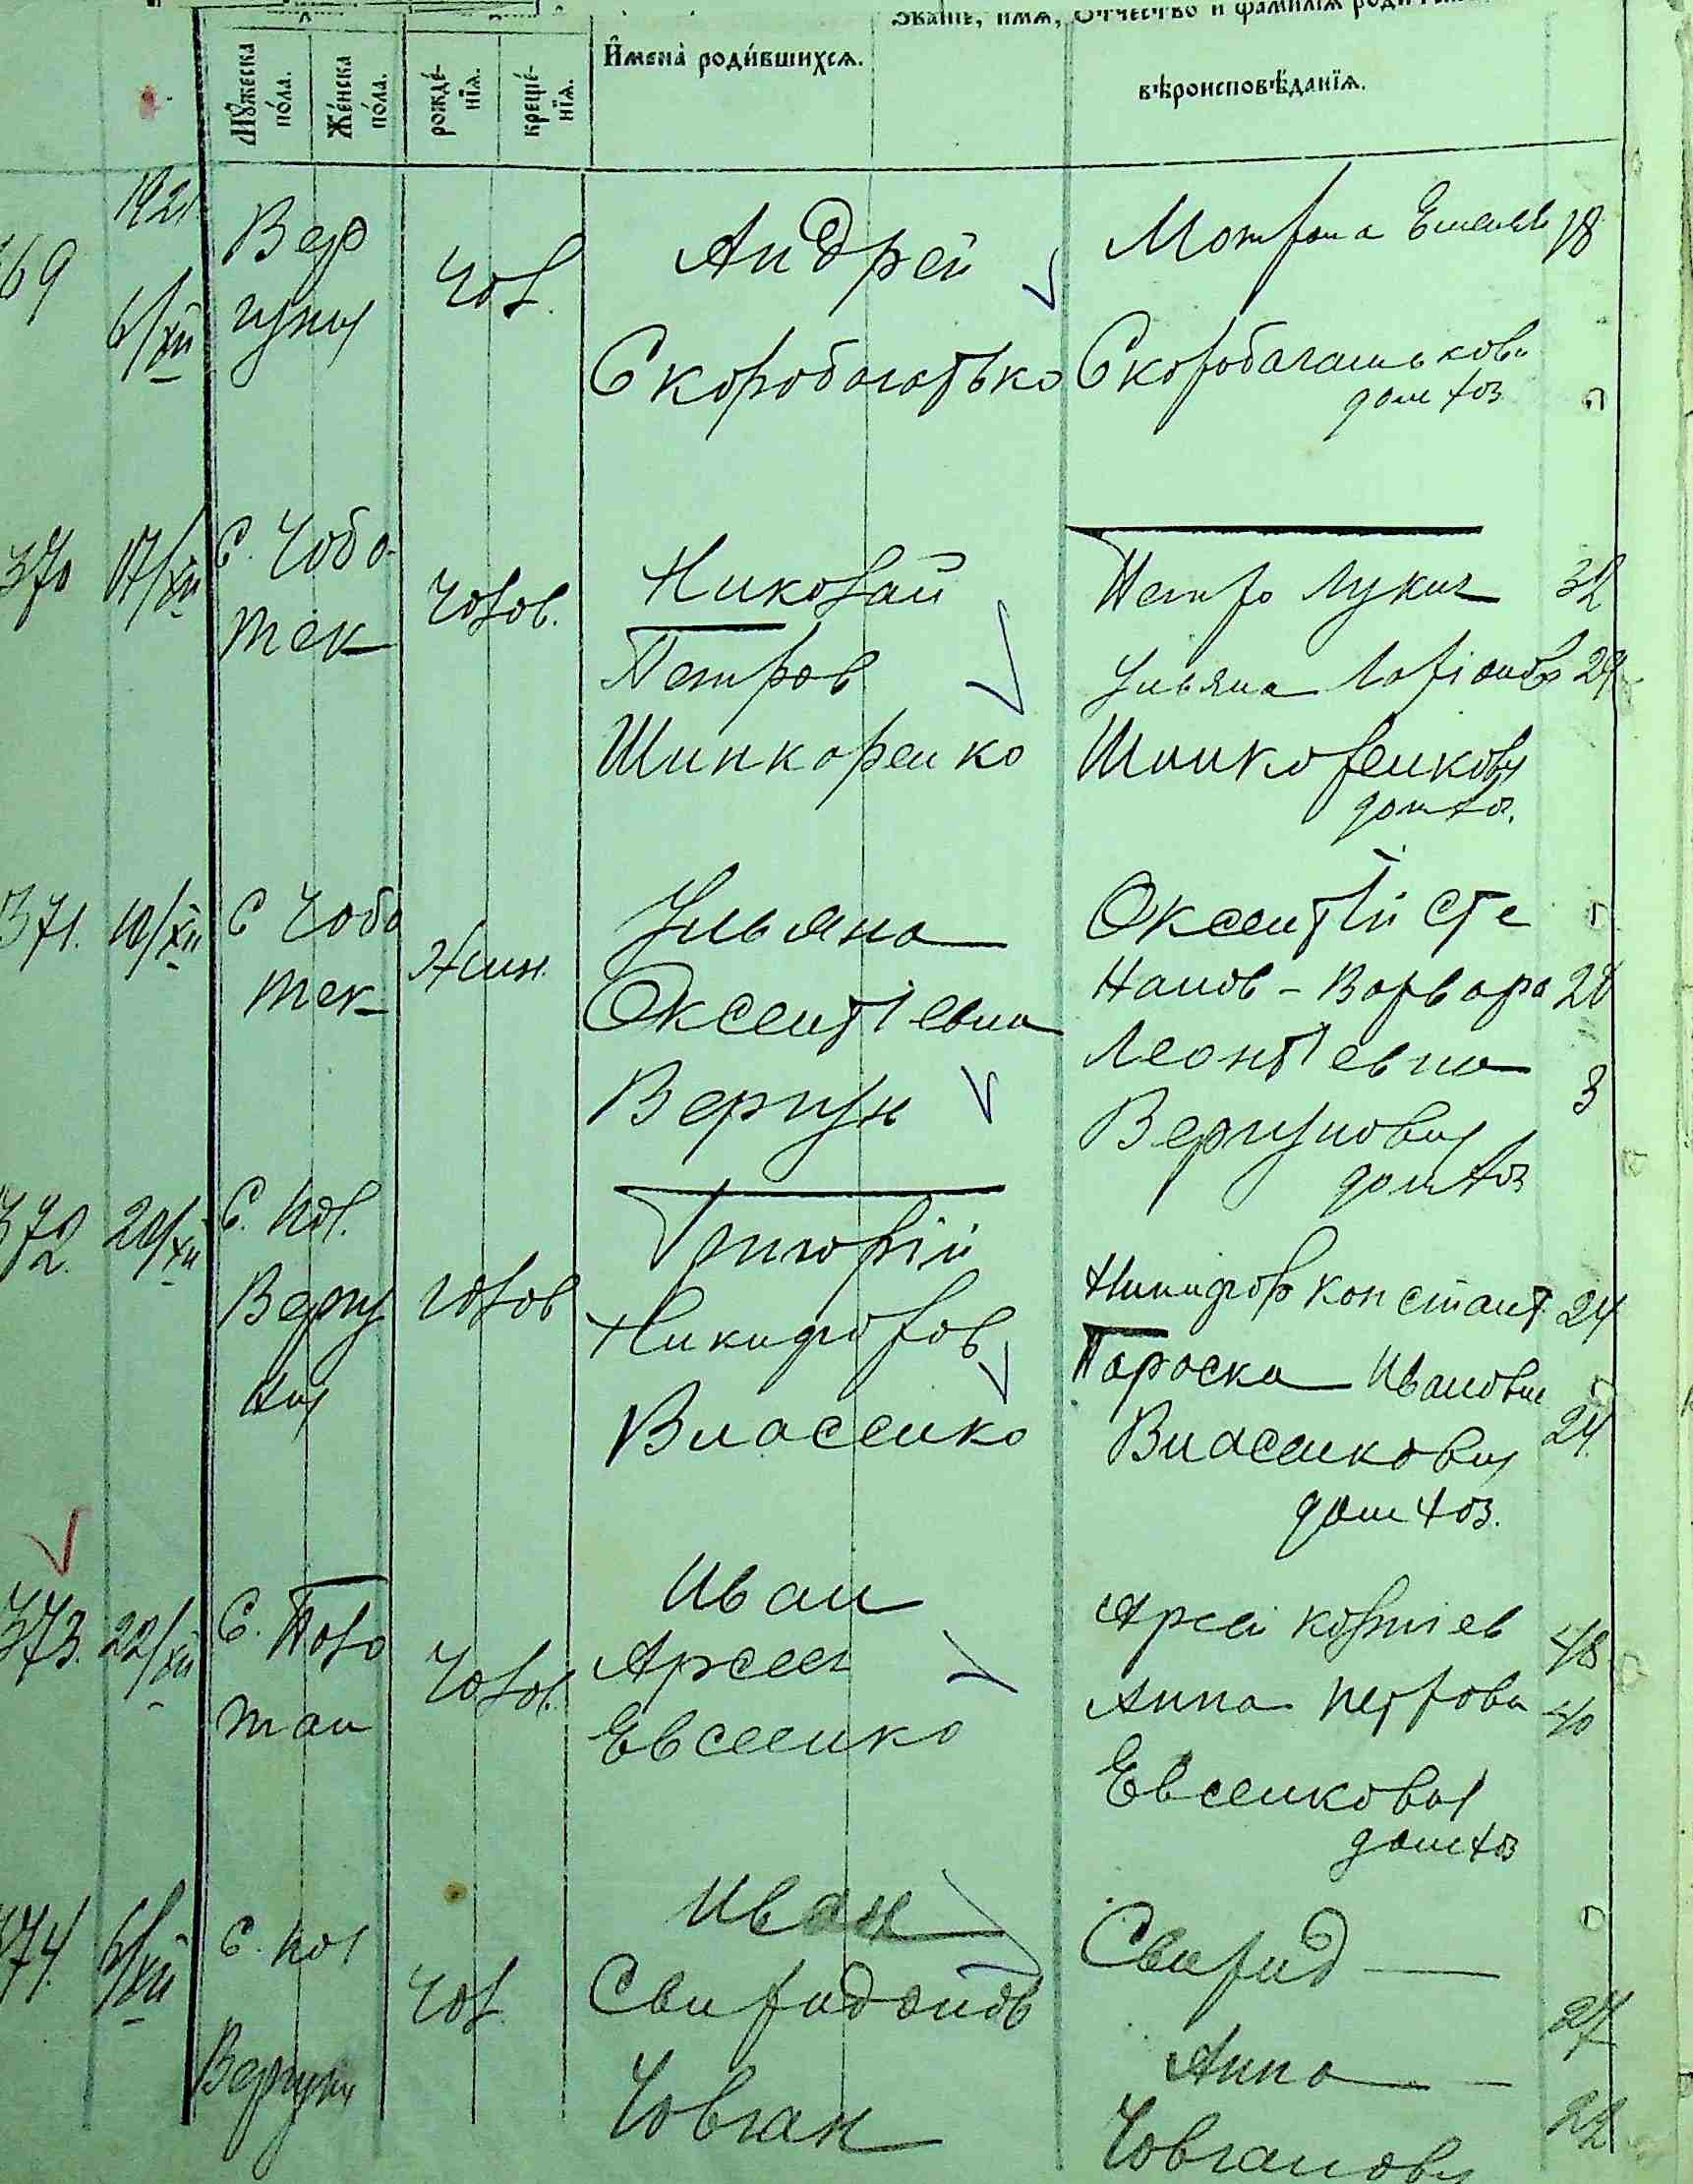 Званіе, имя, Отчество и фамилія
Мꙋжеска по́ла.
Же́нска по́ла.
рожде́нїѧ.
креще́нїѧ.
И҆мена̀ роди́вшихсѧ.
вѣроисповѣ́данїѧ.
1921
69
6/XII
Вер
гуны
Чол.
Андрей
Скоробогатько
Мотрона Емельян 18
Скоробагатькови
дом хоз
370
17/XII
С. Чобо-
тек
Чолов.
Николай
Петров
Шинкоренко
Петро Лукич 32
Ульяна 29
Шинкоренковы
дом хоз.
371.
10/XII
С Чобо
тек
Жин.
Ульяна
Оксентіевна
Вергун
Оксентій Сте
панов - Варвара 28
Леонтіевна
3
Вергуновы
дом хоз
372.
20/XII
С. Пол.
Вергу
ны
Чолов
Григорій
Никифоров
Власенко
Никифор Констант 24
Пароска Ивановна
24.
Власенковы
дом хоз.
373.
22/XII
С.
тан
Чолов.
Иван
Арсен
Евсеенко
Арсен Корніев 48
Анна Петровн 40
Евсенковы
дом хоз
374.
6/XII
С. Пол
Вергуны
Чол.
Иван
Свиридонов
Човган
Свирид —
27
Анна —
22
Човгановы